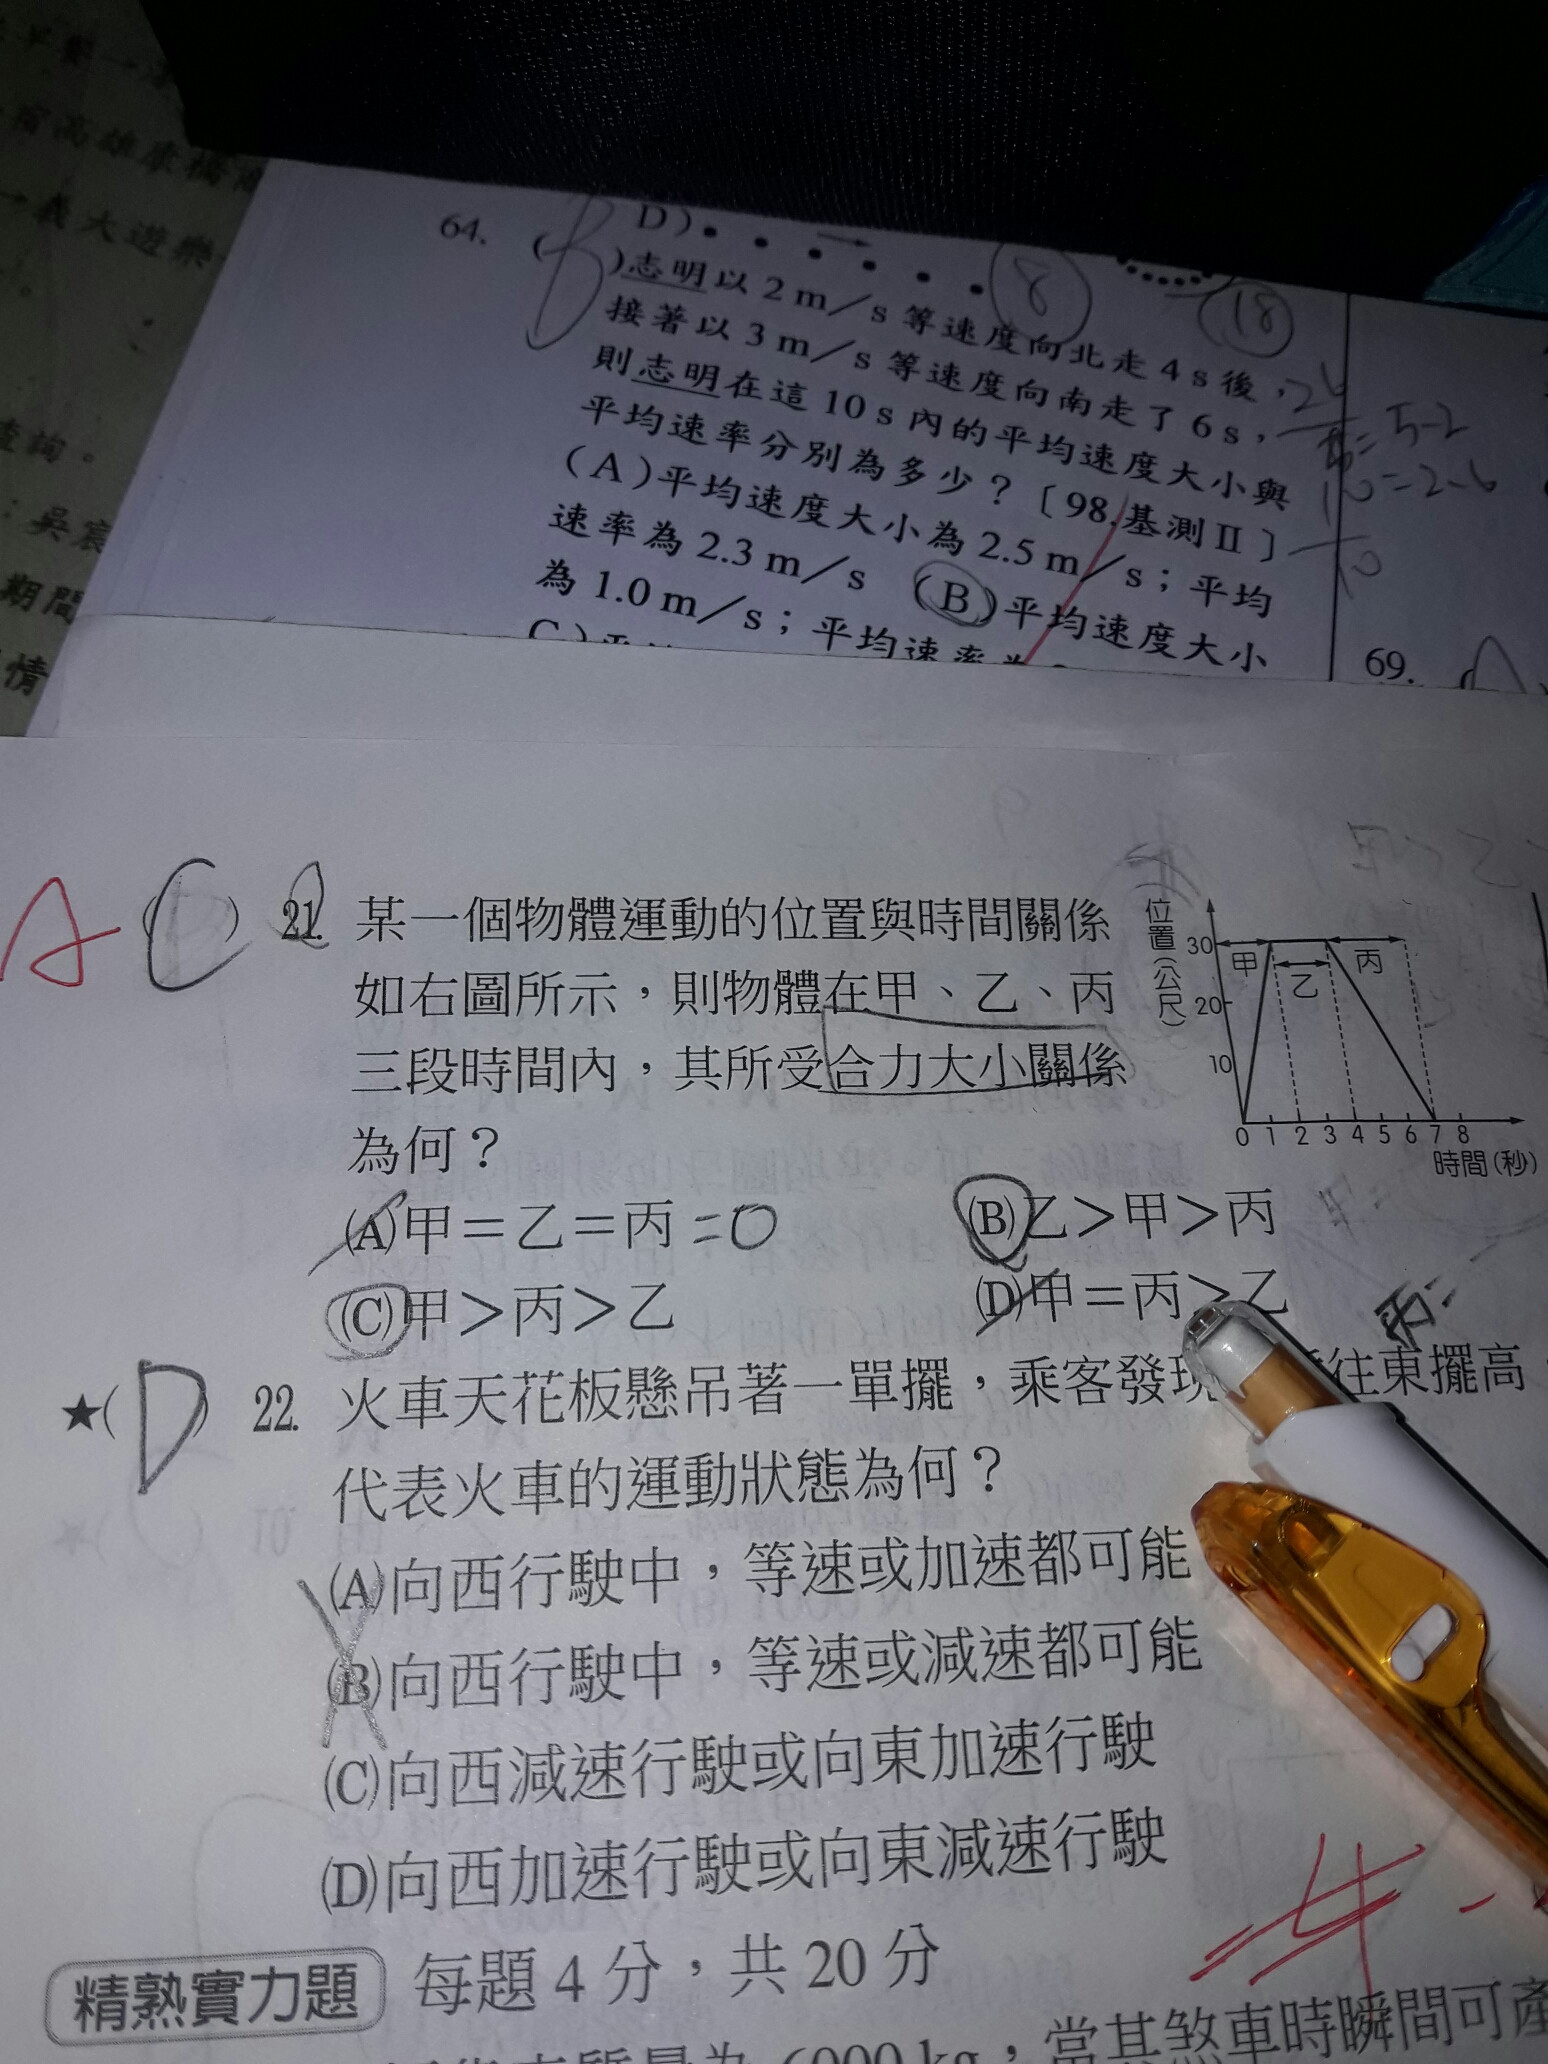 一義大遊樂
查詢。
期間
情
64.
D)
8
18
)志明以2m/s等速度向北走4s後，
接著以3m/s等速度向南走了6s，
則志明在這10s內的平均速度大小與
平均速率分別為多少？〔98.基測Ⅱ〕
(A)平均速度大小為2.5m/s；平均
速率為2.3m/s (B)平均速度大小
為1.0m/s；平均速率為
69.
A (C) 21. 某一個物體運動的位置與時間關係
如右圖所示，則物體在甲、乙、丙
三段時間內，其所受合力大小關係
為何？
(A)甲＝乙＝丙 =0 (B)乙＞甲＞丙
(C)甲＞丙＞乙 (D)甲＝丙＞乙
位置(公尺)
30 甲 乙 丙
20
10
0 1 2 3 4 5 6 7 8
時間(秒)
丙=
★(D) 22. 火車天花板懸吊著一單擺，乘客發現 往東擺高
代表火車的運動狀態為何？
(A)向西行駛中，等速或加速都可能
(B)向西行駛中，等速或減速都可能
(C)向西減速行駛或向東加速行駛
(D)向西加速行駛或向東減速行駛
精熟實力題 每題4分，共20分
質量為6000kg，當其煞車時瞬間可產